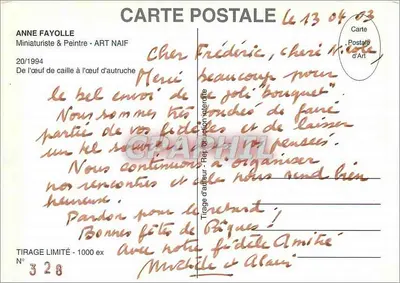 CARTE POSTALE
le 13 04 03
ANNE FAYOLLE
Miniaturiste & Peintre - ART NAIF
20/1994
De l'œuf de caille à l'œuf d'autruche
Carte
Postale
d'Art
Cher Frédéric, chère Nicole,
Merci beaucoup pour
le bel envoi de ce joli "bouquet"
Nous sommes très touchés de faire
partie de vos fidèles et de laisser
un tel dans vos pensées.
Nous continuons à organiser
nos rencontres et cela nous rend bien
heureuse.
Pardon pour le retard!
Bonnes fêtes de Pâques!
avec notre fidèle Amitié
Michèle et Alain
Tirage d'auteur - Reproduction interdite
TIRAGE LIMITÉ - 1000 ex
N° 328